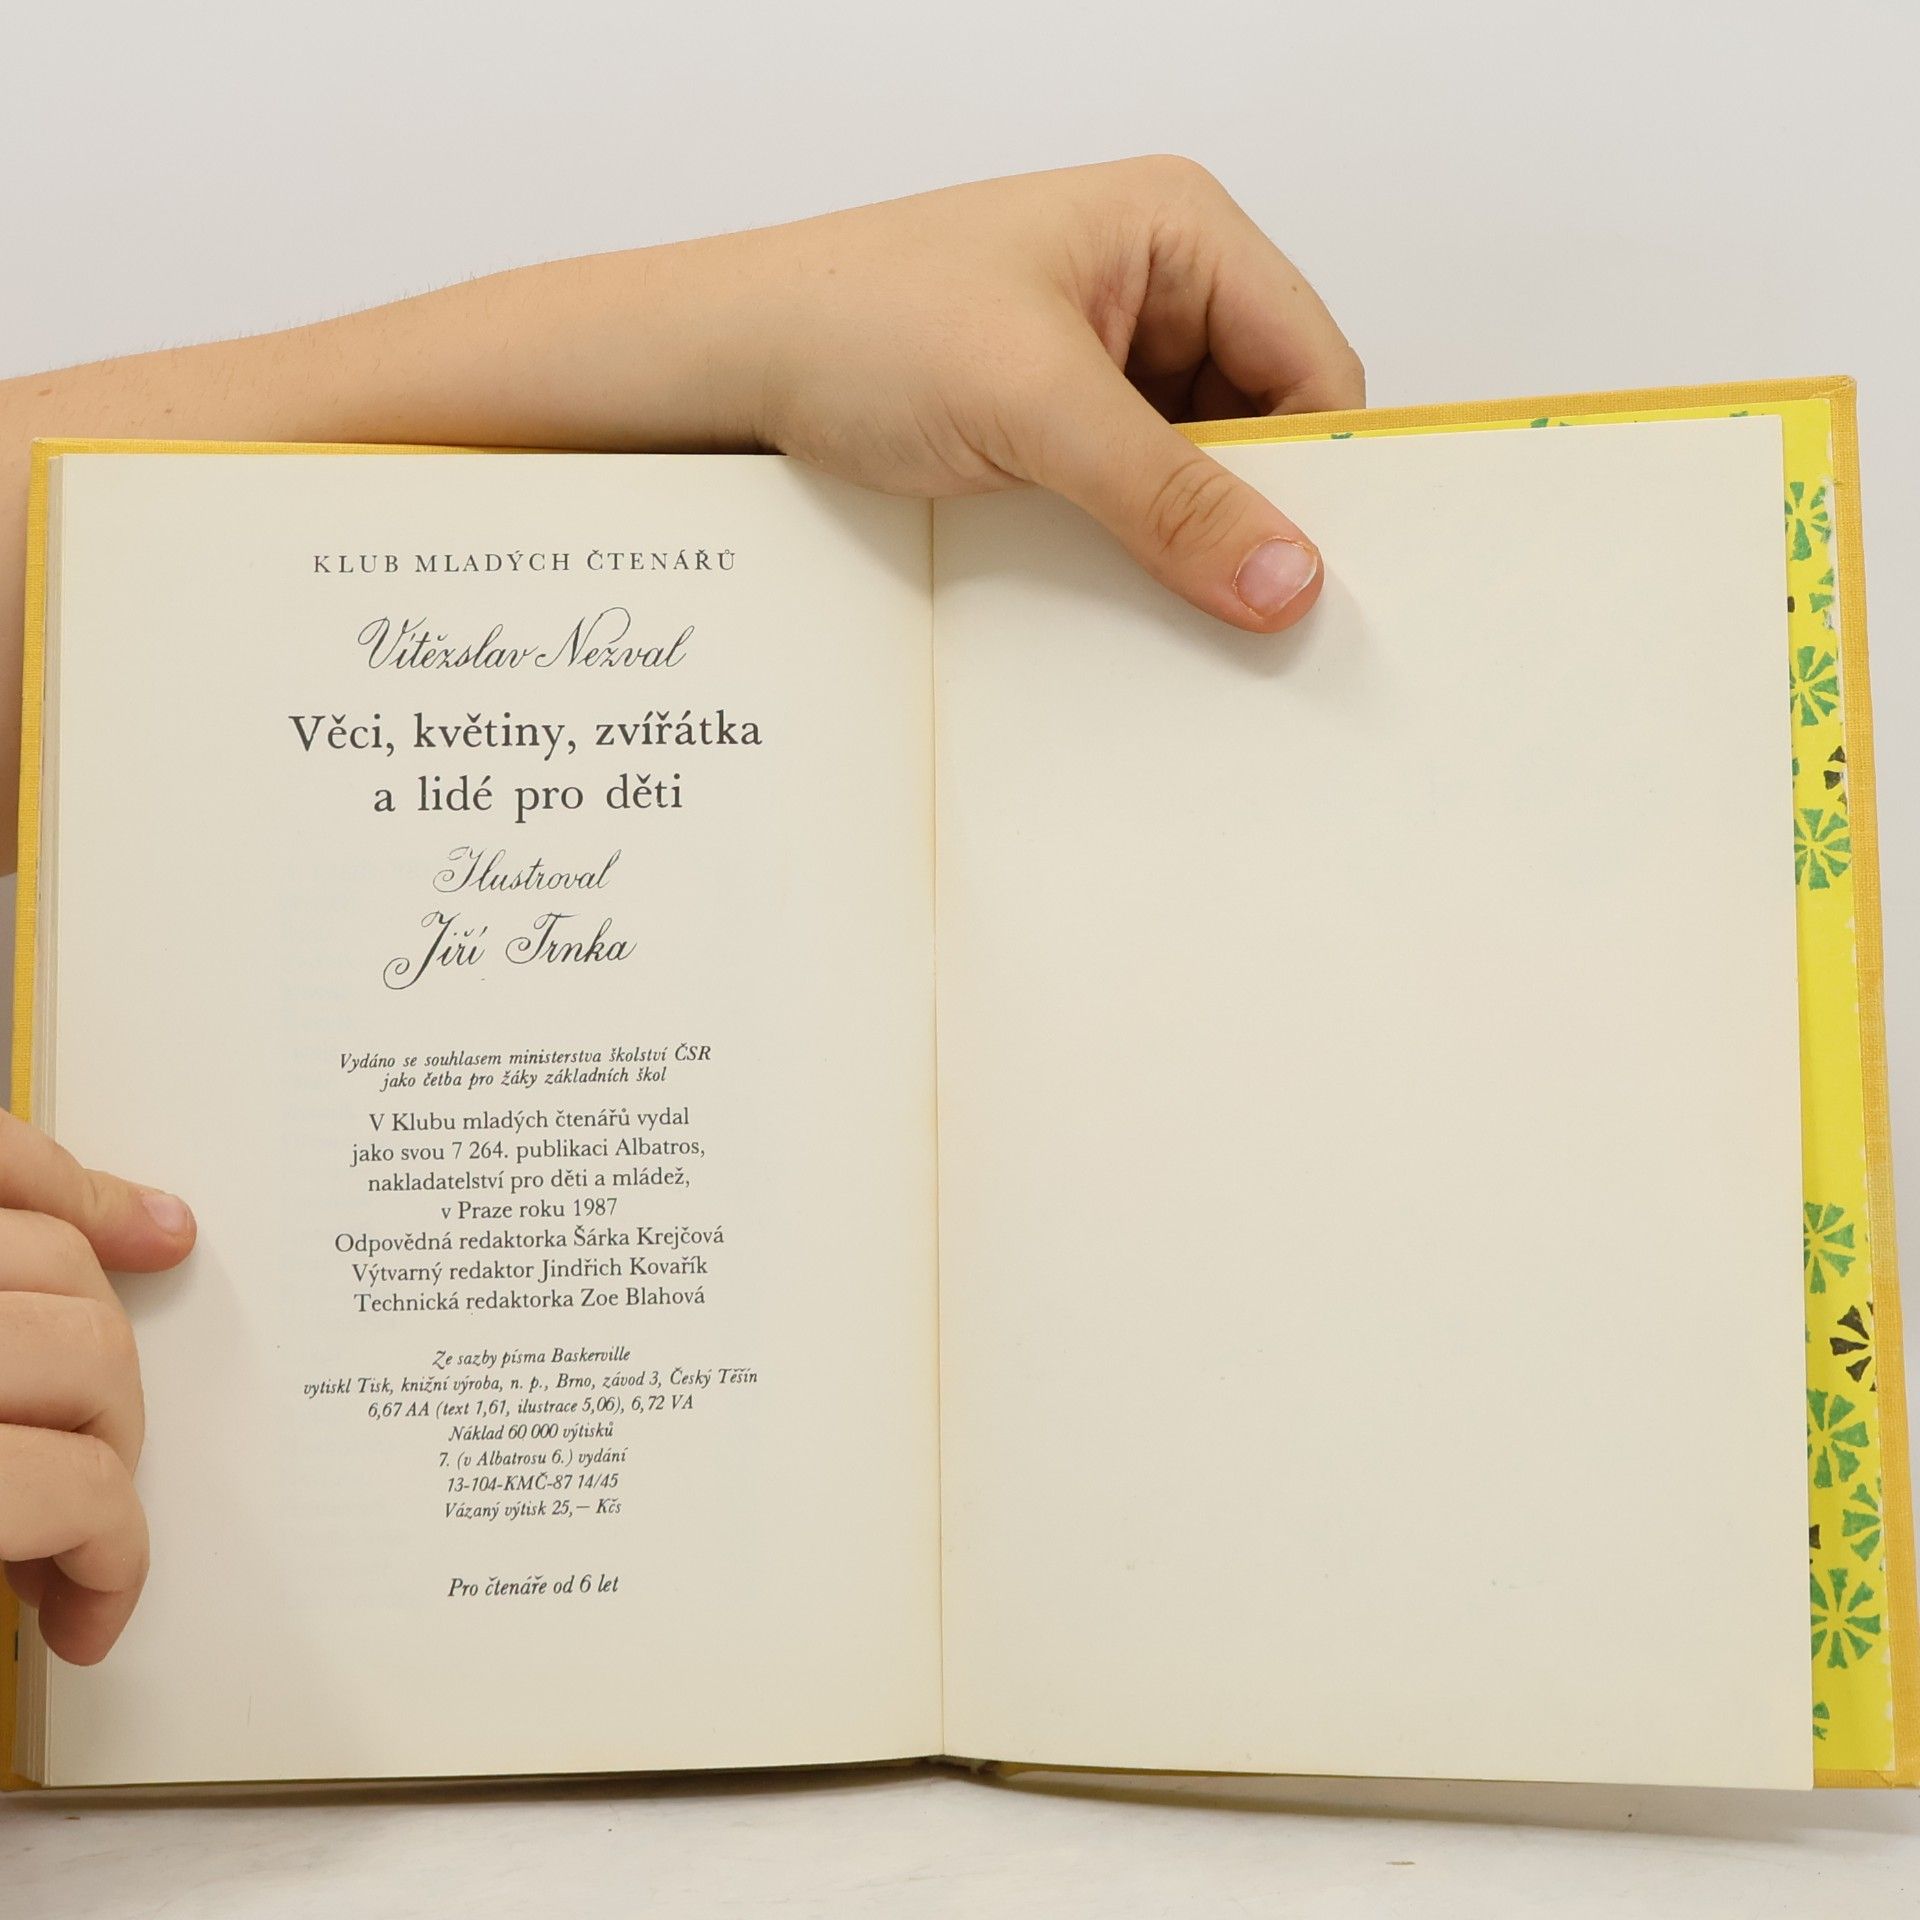 KLUB MLADÝCH ČTENÁŘŮ
Vítězslav Nezval
Věci, květiny, zvířátka
a lidé pro děti
Ilustroval
Jiří Trnka
Vydáno se souhlasem ministerstva školství ČSR
jako četba pro žáky základních škol
V Klubu mladých čtenářů vydal
jako svou 7 264. publikaci Albatros,
nakladatelství pro děti a mládež,
v Praze roku 1987
Odpovědná redaktorka Šárka Krejčová
Výtvarný redaktor Jindřich Kovařík
Technická redaktorka Zoe Blahová
Ze sazby písma Baskerville
vytiskl Tisk, knižní výroba, n. p., Brno, závod 3, Český Těšín
6,67 AA (text 1,61, ilustrace 5,06), 6,72 VA
Náklad 60 000 výtisků
7. (v Albatrosu 6.) vydání
13-104-KMČ-87 14/45
Vázaný výtisk 25,— Kčs
Pro čtenáře od 6 let